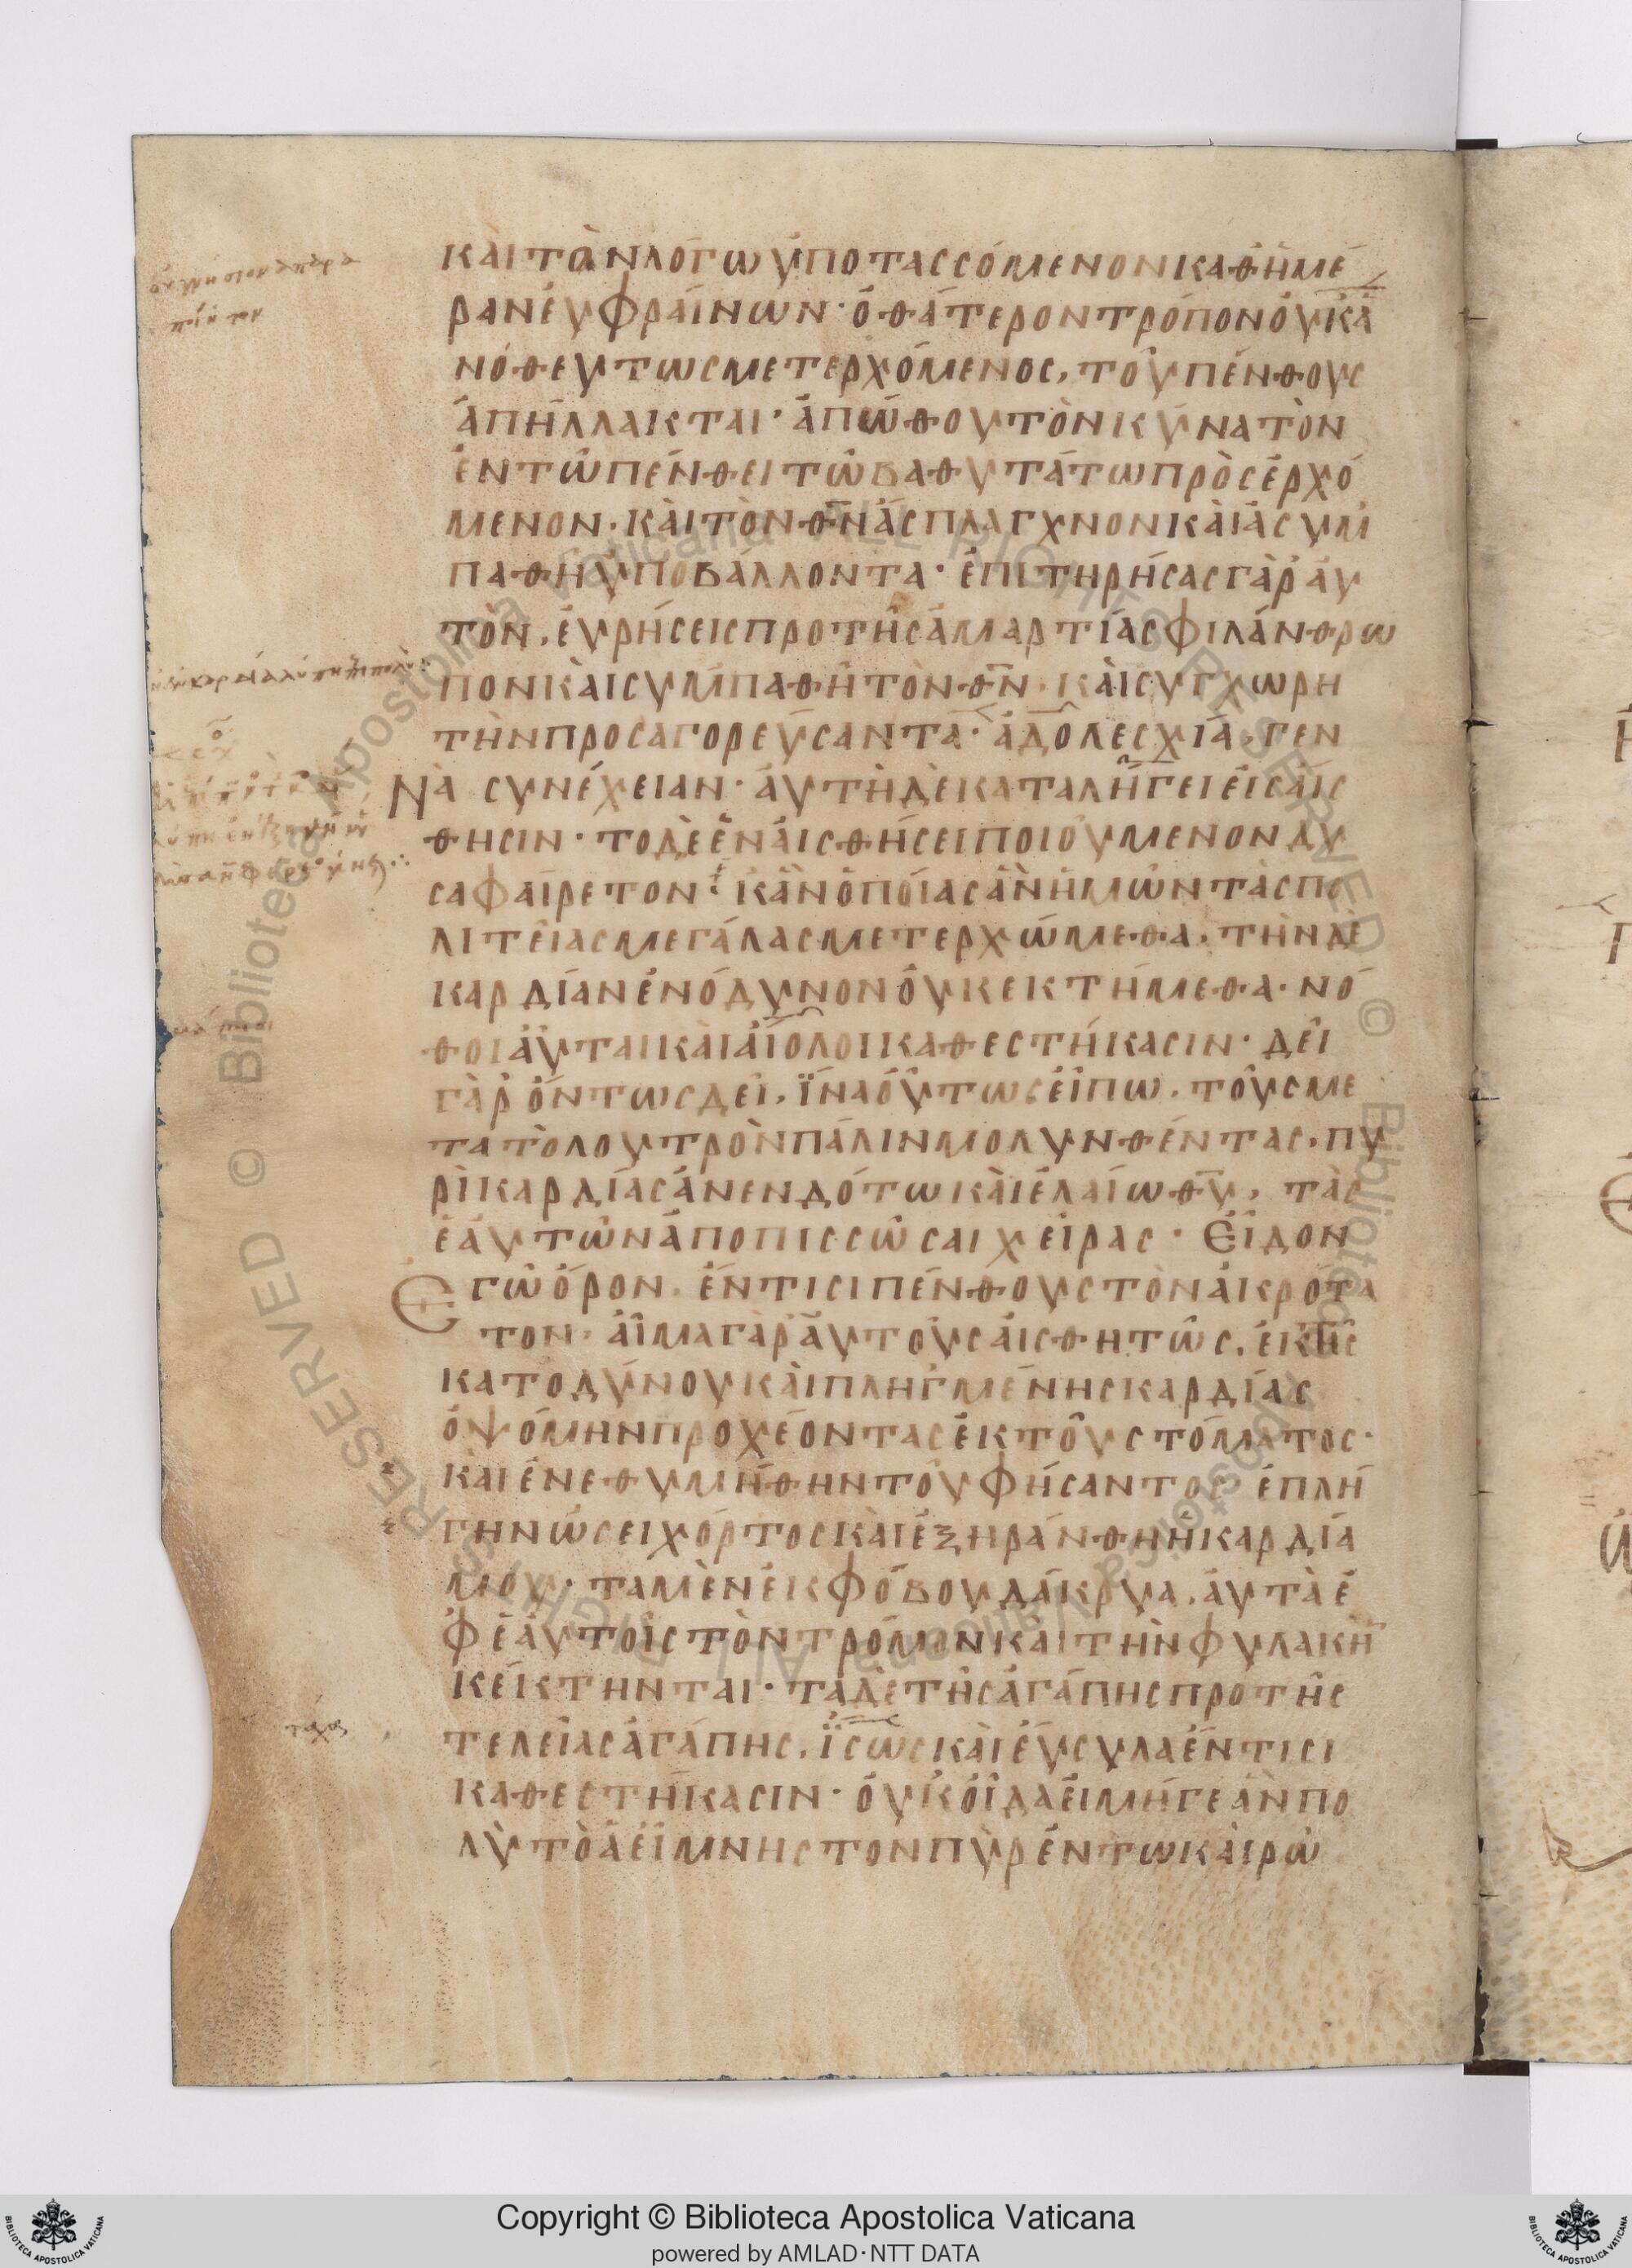 ΚᾺΙΤῺΝΛΌΓΩΥΠΟΤΑΣΣΌΜΕΝΟΝΚΑΘΗΜΈ
ΡΑΝΕΥΦΡΑΊΝΩΝ· ὉΘΆΤΕΡΟΝΤΡΌΠΟΝΟΥΚᾹ
ΝΌΘΕΥΤΩΣΜΕΤΕΡΧΌΜΕΝΟΣ, ΤΟΥΠΈΝΘΟΥΣ
ἈΠΉΛΛΑΚΤΑΙ· ἈΠΏΘΟΥΤῸΝΚΎΝΑΤῸΝ
ἘΝΤΩΠΈΝΘΕΙΤΩΒΑΘΥΤΆΤΩΠΡῸΣΕΡΧΌ
ΜΕΝΟΝ· ΚᾺΙΤῸΝΘ̅Ν̅ἌΣΠΛΑΓΧΝΟΝΚᾺΙἈΣΥΜ
ΠΑΘΗΥΠΟΒΆΛΛΟΝΤΑ· ἘΠΙΤΗΡΉΣΑΣΓᾺΡΑΥ
ΤῸΝ, ΕΥΡΉΣΕΙΣΠΡΟΤΗΣἈΜΑΡΤΊΑΣΦΙΛΆΝΘΡΩ
ΠΟΝΚᾺΙΣΥΜΠΑΘΗΤῸΝΘ̅Ν̅· ΚᾺΙΣΥΓΧΩΡΗ
ΤῊΝΠΡΟΣΑΓΟΡΕΎΣΑΝΤΑ· ἈΔΟΛΕΣΧΊΑ, ΓΕΝ
ΝᾺ ΣΥΝΈΧΕΙΑΝ· ΑΥΤῊΔῈΚΑΤΑΛΉΓΕΙΕΙΣΑΙΣ
ΘΗΣΙΝ· ΤΟΔῈἘΝΑΙΣΘΉΣΕΙΠΟΙΟΎΜΕΝΟΝΔΥ
ΣΑΦΑΊΡΕΤΟΝ· ΚἊΝὉΠΟΊΑΣἊΝΗΜΩΝΤᾺΣΠΟ
ΛΙΤΕΊΑΣΜΕΓΆΛΑΣΜΕΤΕΡΧΏΜΕΘΑ, ΤῊΝΔῈ
ΚΑΡΔΊΑΝἘΝΌΔΥΝΟΝΟΥΚΕΚΤΉΜΕΘΑ· ΝΌ
ΘΟΙΑΥΤΑΙΚᾺΙἈΙΟΛΟΙΚΑΘΕΣΤΉΚΑΣΙΝ· ΔΕΙ
ΓᾺΡΌΝΤΩΣΔΕΙ, ΪΝΑΟΥΤΩΣΕΊΠΩ, ΤΟΥΣΜΕ
ΤΑΤῸΛΟΥΤΡῸΝΠΆΛΙΝΜΟΛΥΝΘΈΝΤΑΣ, ΠΥ
ΡῚΚΑΡΔΊΑΣἈΝΕΝΔΌΤΩΚᾺΙἘΛΑΊΩΘ̅Υ̅, ΤᾺΣ
ἙΑΥΤΩΝἈΠΟΠΙΣΣΩΣΑΙΧΕΙΡΑΣ· ΕΊΔΟΝ
ΕΓΩΌΡΟΝ, ἘΝΤΙΣΙΠΈΝΘΟΥΣΤῸΝἈΚΡΌΤΑ
ΤΟΝ· ΑΙΜΑΓᾺΡΑΥΤΟΥΣΑΙΣΘΗΤΩΣ, ἘΚΤΗΣ
ΚΑΤΟΔΎΝΟΥΚᾺΙΠΛΗΓΜΈΝΗΣΚΑΡΔΊΑΣ
ὈΨΌΜΗΝΠΡΟΧΈΟΝΤΑΣἘΚΤΟΥΣΤΌΜΑΤΟΣ·
ΚΑΙἘΝΕΘΥΜΉΘΗΝΤΟΥΦΉΣΑΝΤΟΣ· ἘΠΛΉ
ΓΗΝΩΣΕΙΧΌΡΤΟΣΚᾺΙἘΞΗΡΆΝΘΗΗΚΑΡΔΊΑ
ΜΟΥ· ΤΑΜῈΝἘΚΦΌΒΟΥΔΆΚΡΥΑ, ΑΥΤᾺἘ
ΦἙΑΥΤΟΙΣΤῸΝΤΡΌΜΟΝΚᾺΙΤῊΝΦΥΛΑΚΗ̅
ΚΕΚΤΗΝΤΑΙ· ΤΑΔῈΤΗΣἈΓΆΠΗΣΠΡΟΤΗΣ
ΤΕΛΕΊΑΣἈΓΆΠΗΣ, ΪΣΩΣΚᾺΙΕΥΣΥΛΑἘΝΤΙΣΙ
ΚΑΘΕΣΤΉΚΑΣΙΝ· ΟΥΚΟΙΔΑΕΙΜΉΓΕἊΝΠΟ
ΛῪΤῸἈΕΊΜΝΗΣΤΟΝΠΥΡἘΝΤΩΚΑΙΡΩ
Copyright © Biblioteca Apostolica Vaticana
powered by AMLAD·NTT DATA